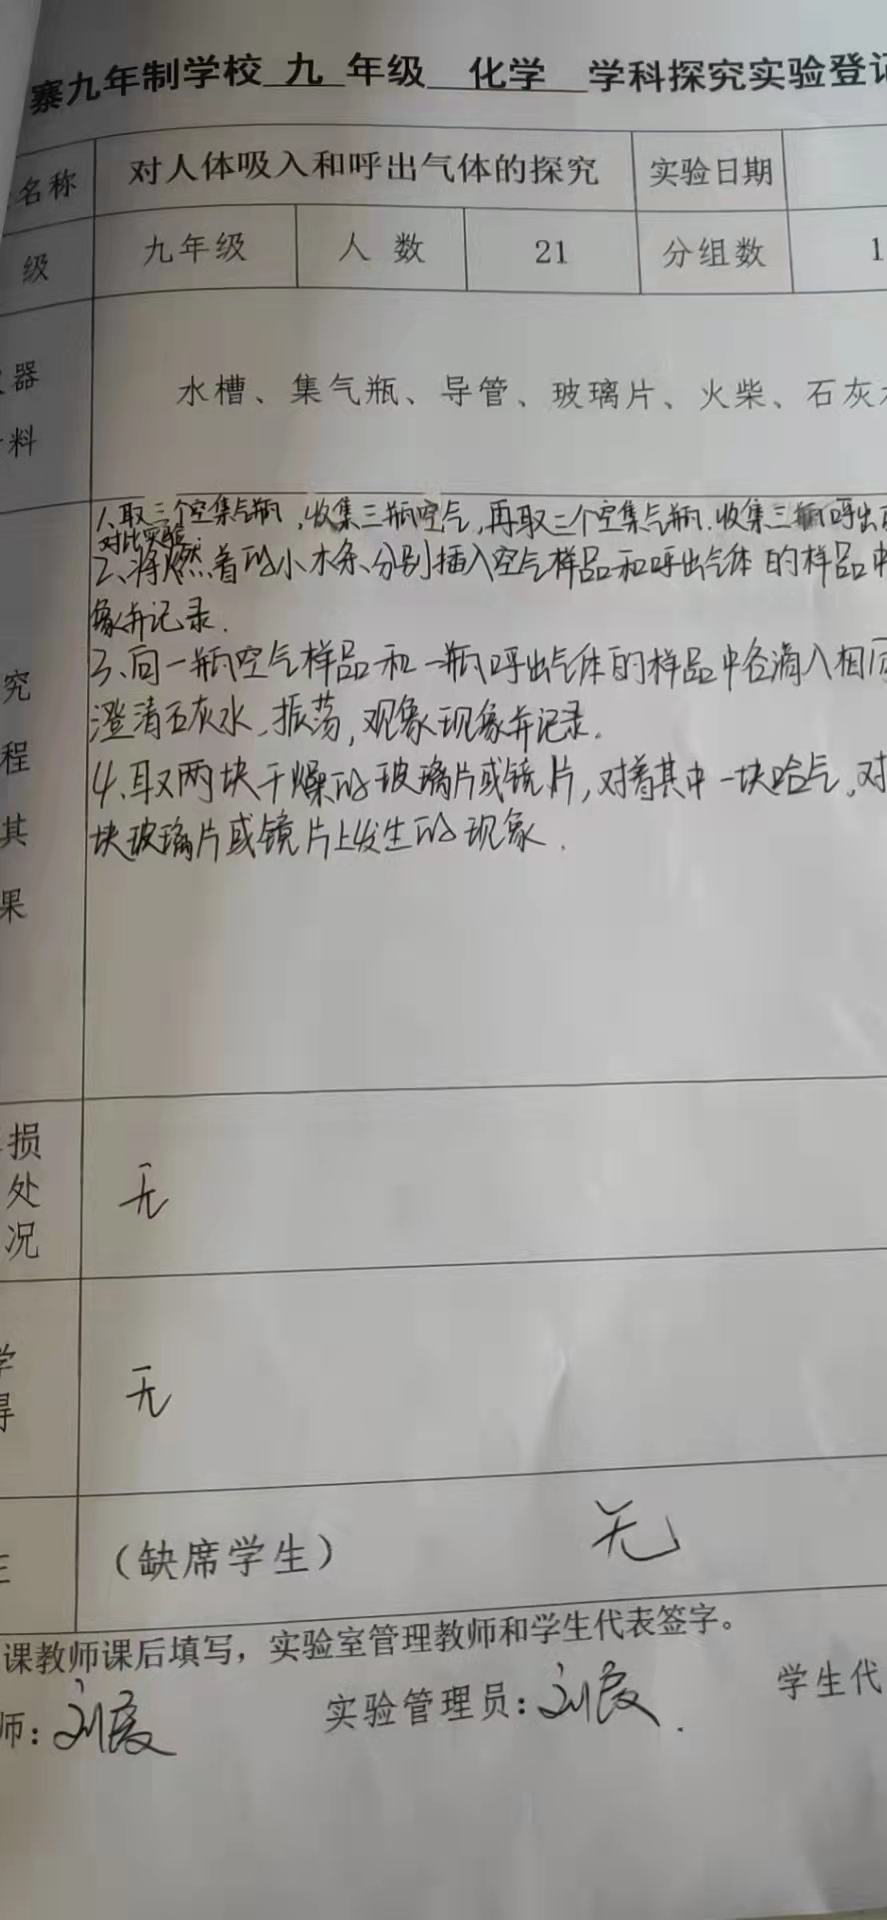 寨九年制学校 九 年级 化学 学科探究实验登记
名称 对人体吸入和呼出气体的探究 实验日期
级 九年级 人数 21 分组数 1
器
料
水槽、集气瓶、导管、玻璃片、火柴、石灰
1、取三个空集气瓶,收集三瓶空气,再取三个空集气瓶.收集三瓶呼出
对比实验.
2、将燃着的小木条、分别插入空气样品和呼出气体的样品中
象并记录.
3、向一瓶空气样品和一瓶呼出气体的样品中各滴入相同
澄清石灰水、振荡,观象现象并记录.
4、取两块干燥的玻璃片或镜片,对着其中一块哈气,对
块玻璃片或镜片上发生的现象.
究
程
其
果
损
处
况
无
学
得
无
(缺席学生) 无
课教师课后填写,实验室管理教师和学生代表签字。
师: 实验管理员: 学生代